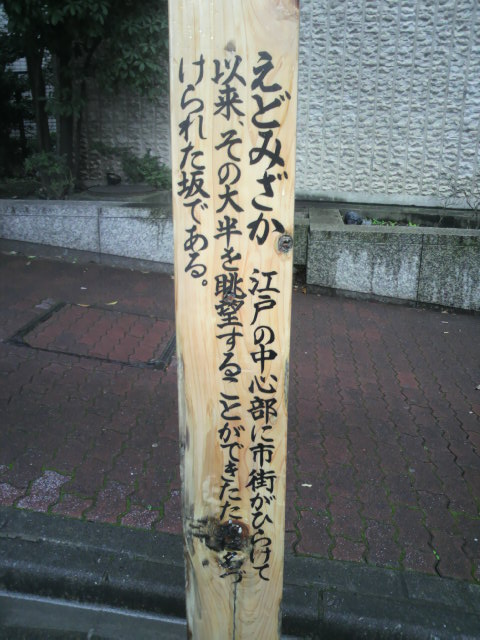 えどみざか 江戸の中心部に市街がひらけて
以来、その大半を眺望することができたた づ
けられた坂である。